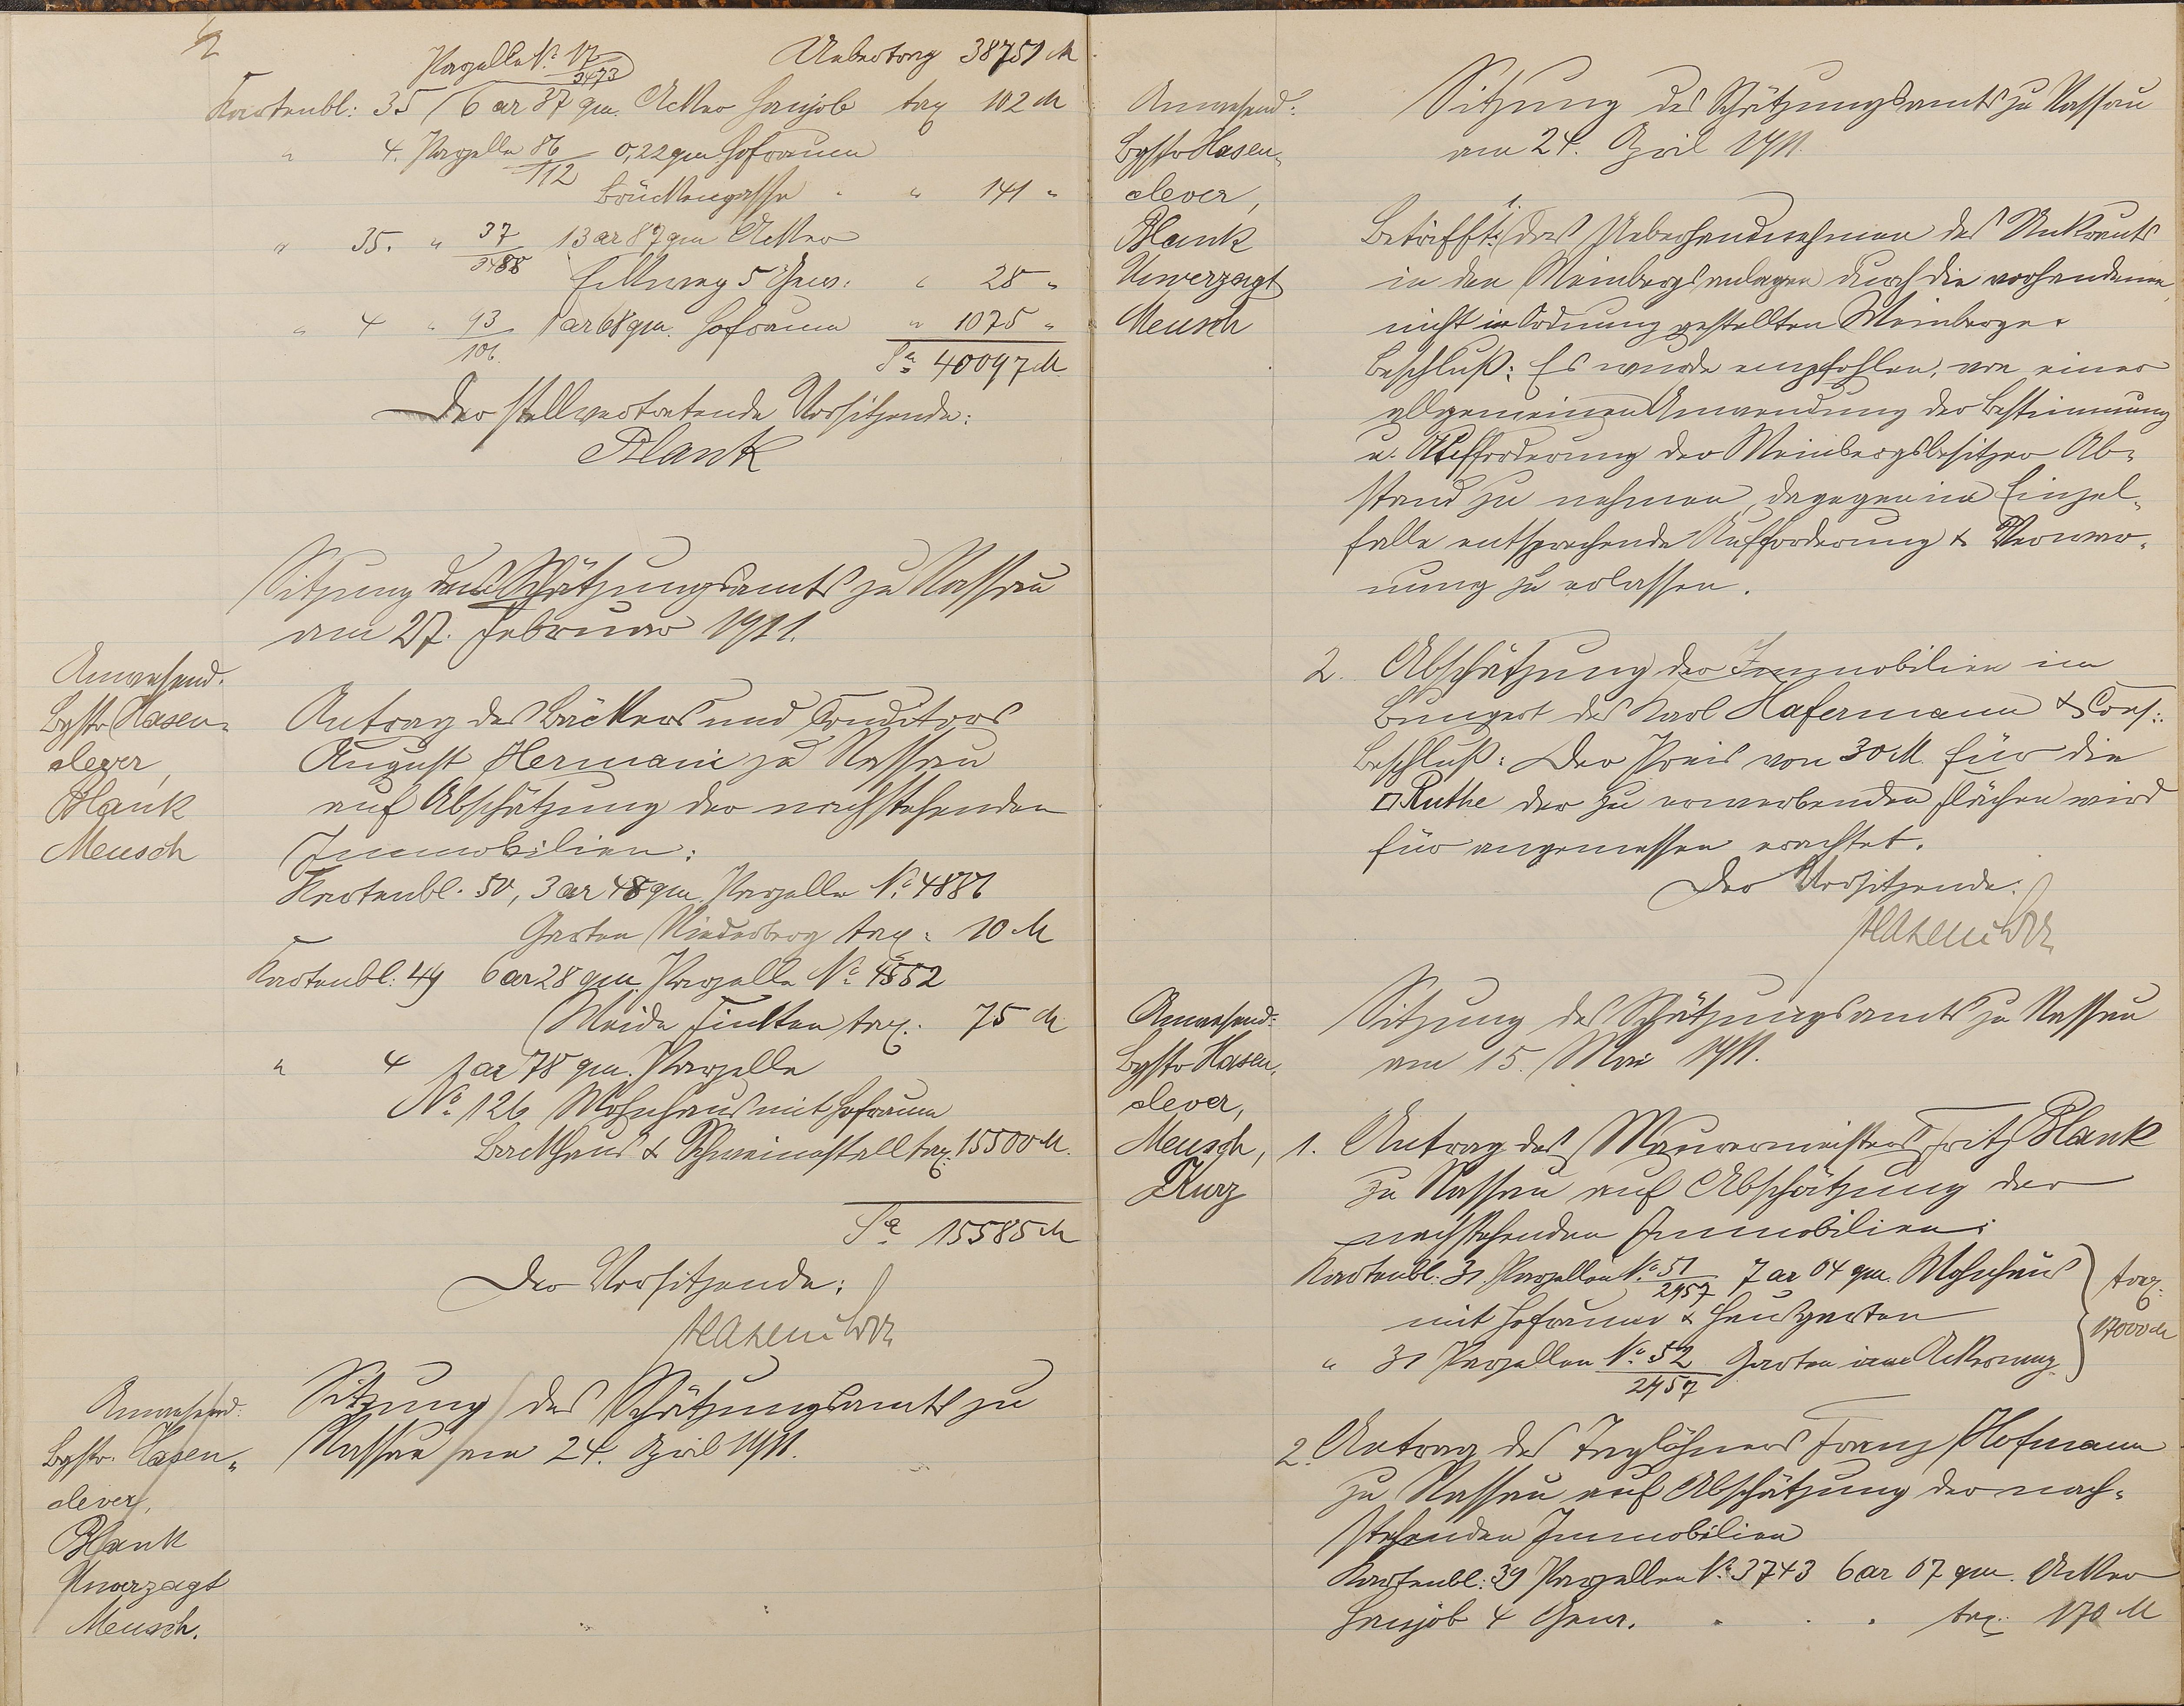 Parzelle No 17/2473 Uebertrag 38751 M
Kartenbl: 35 6 ar 37 qm. Acker Hanjob tax 102 M
" 4. Parzelle 86/112 0,22 qm Hofraum
Brückengasse " " 141 "
" 35. " 37/2488 13 ar 87 qm Acker
5 Gew: " 28 "
" 4 " 93/106. 1 ar 68 qm. Hofraum " 1075 "
Sa 40097 M
Der stellvertretende Vorsitzende:
Plank
Sitzung des Schätzungsamts zu Nassau
am 27. Februar 1911.
Anwesend.
Bgstr Hasen-
clever,
Plank
Meusch
Antrag des Bäckers und Conditors
August Hermani zu Nassau
auf Abschätzung der nachstehenden
Immobilien:
Kartenbl. 50, 3 ar 48 qm Parzelle No. 4886
Garten Niederberg tax: 10 M
Kartenbl: 49 6 ar 28 qm. Parzelle No 4552
Weide tax. 75 M
" 4 1 ar 78 qm. Parzelle
No 126 Wohnhaus mit Hofraum
Backhaus & Schweinestall tax: 15500 M.
Sa 15585 M
Der Vorsitzende:
Hasenclever
Anwesend:
Bgstr. Hasen-
clever,
Plank
Unverzagt
Meusch.
Sitzung des Schätzungsamts zu
Nassau am 24. April 1911.
Anwesend:
Bgstr Hasen-
clever,
Plank
Unverzagt
Meusch
Sitzung des Schätzungsamts zu Nassau
am 24. April 1911.
1.
Betrifft: das Ueberhandnehmen des Unkrauts
in den Weinbergsanlagen durch die vorhandenen,
nicht in Ordnung gestellten Weinberge.
Beschluß: Es wurde empfohlen, von einer
allgemeinen Anwendung der Bestimmung
u. Aufforderung der Weinbergsbesitzer Ab-
stand zu nehmen, dagegen im Einzel-
falle entsprechende Aufforderung & Verwar-
nung zu erlassen.
2. Abschätzung der Immobilien im
Bungert des Karl Hafermann & Cons.:
Beschluß: Der Preis von 30 M. für die
□ Ruthe der zu erwerbenden Flächen wird
für angemessen erachtet.
Der Vorsitzende:
Hasenclever
Anwesend:
Bgstr Hasen-
clever,
Meusch,
Kurz
Sitzung des Schätzungsamts zu Nassau
am 15. Mai 1911.
1. Antrag des Maurermeisters Fritz Plank
zu Nassau auf Abschätzung der
nachstehenden Immobilien:
Kartenbl: 31. Parzellen No. 51/2457 7 ar 04 qm. Wohnhaus
mit Hofraum & Hausgarten
tax: 17000 M
" 31 Parzellen No. 52/2457 Garten
2. Antrag des Taglöhners Franz Hofmann
zu Nassau auf Abschätzung der nach-
stehenden Immobilien
Kartenbl: 39 Parzellen No 3743 6 ar 07 qm. Acker
Hanjob 4 Gew. . . . tax: 170 M